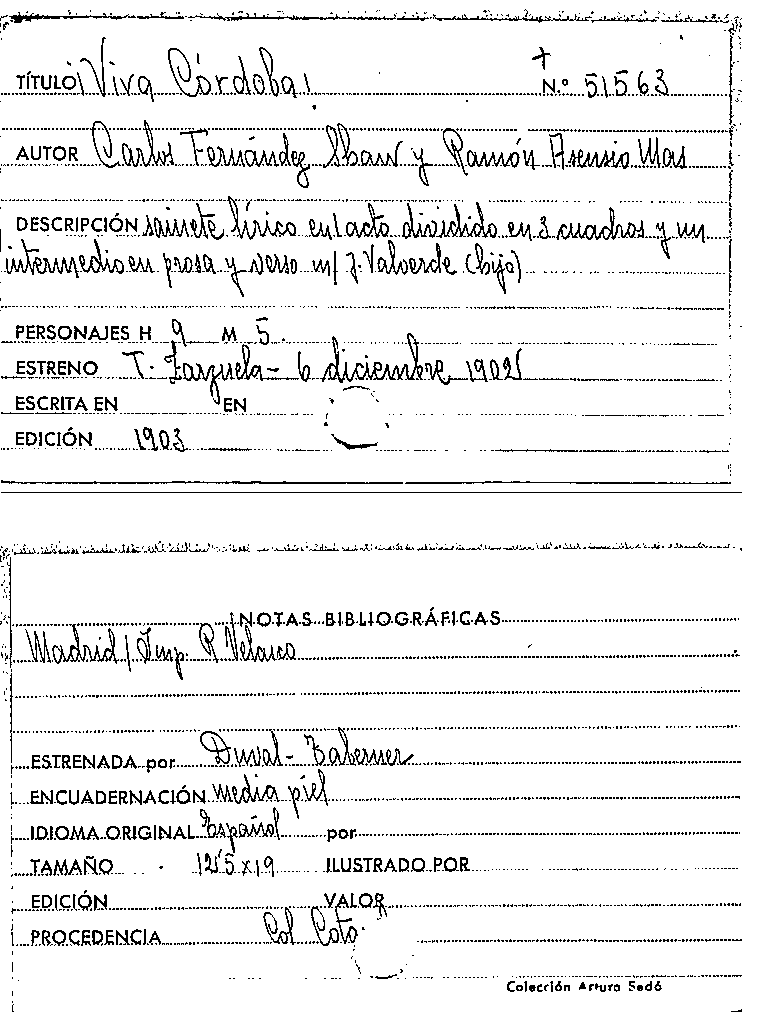 TÍTULO ¡Viva Córdoba!
+
N.º 51563
AUTOR Carlos Fernández Shaw y Ramón Asensio Mas
DESCRIPCIÓN sainete lírico en 1 acto dividido en 3 cuadros y un
intermedio en prosa y verso m/ J. Valverde (hijo)
PERSONAJES H 9 M 5.
ESTRENO T. Zarzuela - 6 diciembre 1902
ESCRITA EN EN
EDICIÓN 1903
NOTAS BIBLIOGRÁFICAS
Madrid / Imp. R. Velasco
ESTRENADA por Duval - Taberner
ENCUADERNACIÓN media piel
IDIOMA ORIGINAL Español por
TAMAÑO 12'5 x 19 ILUSTRADO POR
EDICIÓN VALOR
PROCEDENCIA Col Coto.
Colección Arturo Sedó